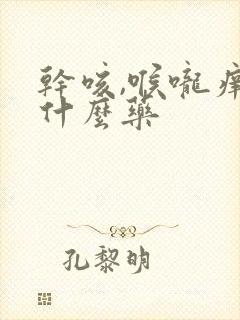 幹咳,喉嚨
什麼藥
孔黎明